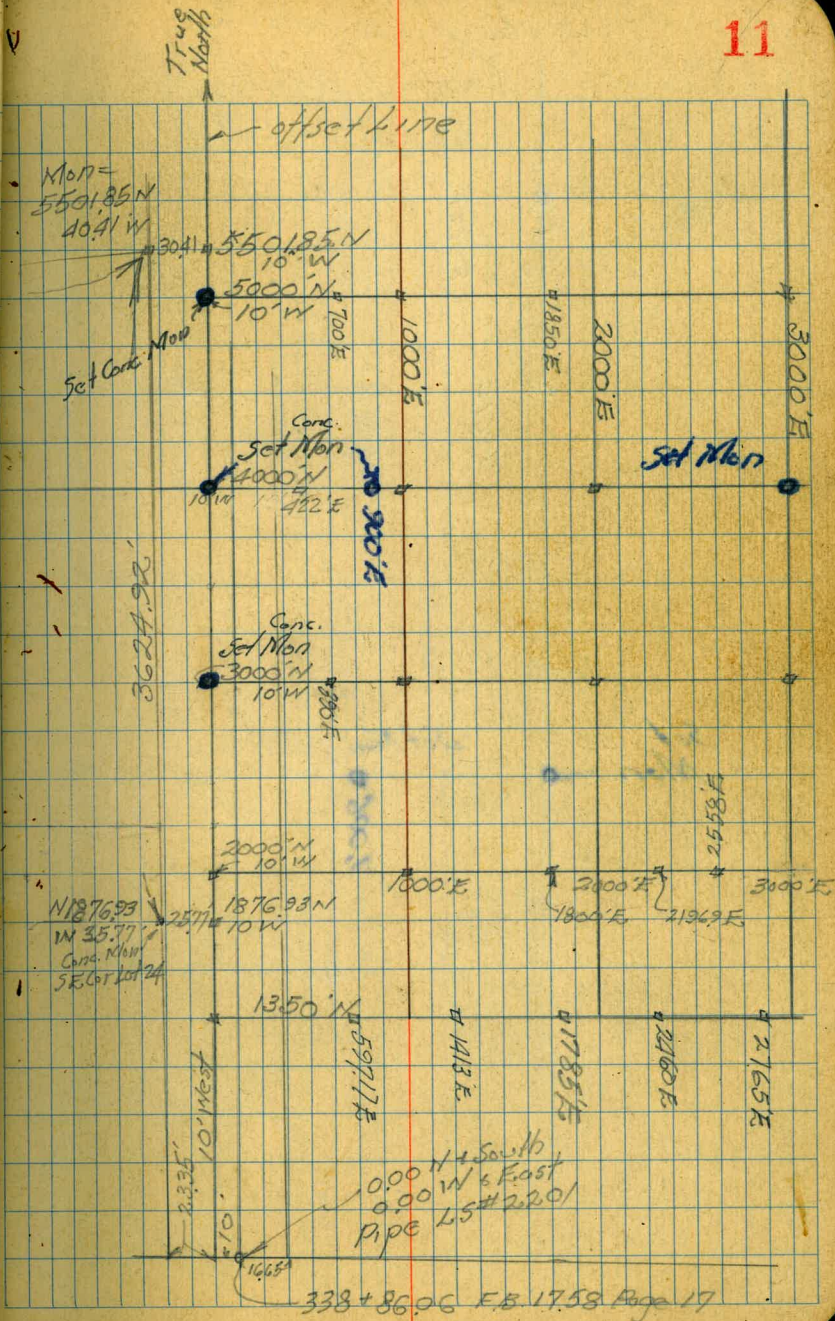 11
True
North
offset Line
Mon=
5501.85 N
40.41 W
30.41
5501.85 N
10' W
5000' N
10' W
Set Conc. Mon
700'E
1000'E
1850'E
2000'E
3000'E
Conc.
Set Mon
4000' N
10' W
422'E
900'E
Set Mon
3624.92'
Conc.
Set Mon
3000' N
10' W
2000' N
10' W
1000'E
1800'E
2000'E
2196.9 E
2558'E
3000'E
N 1876.93
W 35.77
Conc. Mon
S.E. Cor Lot 24
25.77
1876.93 N
10' W
1350' N
597.17 E
1413 E
1785'E
2160'E
2765'E
10' West
23.35'
10'
16.65'
0.00 N & South
0.00 W & East
Pipe LS #2201
338+86.06 F.B. 1758 Page 17